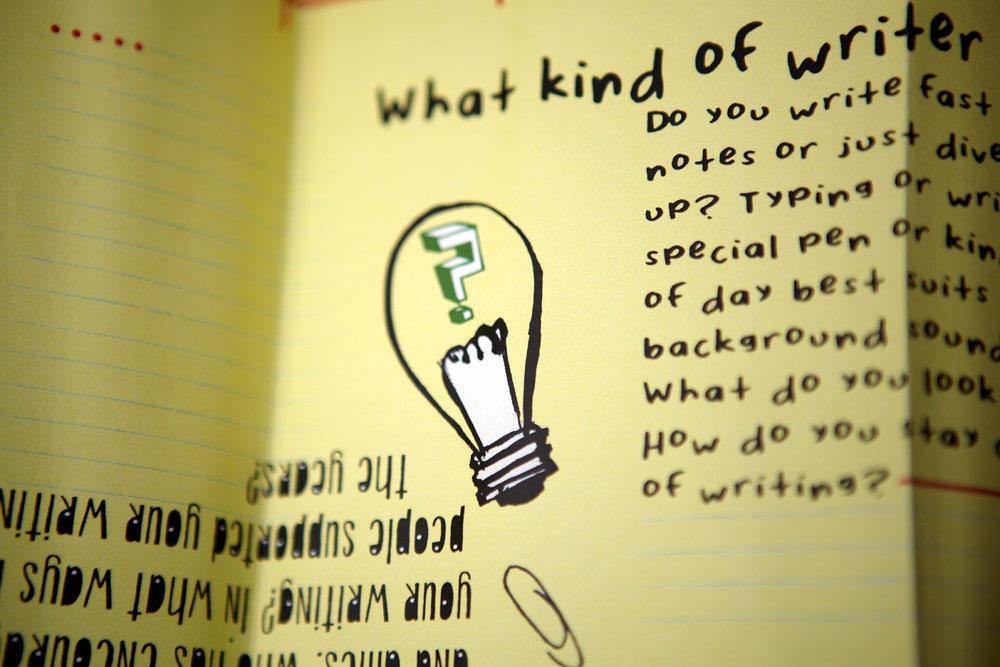 What kind of writer
Do you write fast
notes or just dive
up? Typing or wri
special pen or kin
of day best suits
background sound
What do you look
How do you stay
of writing?
?
and
your writing? In what ways
people supported your writin
the years?